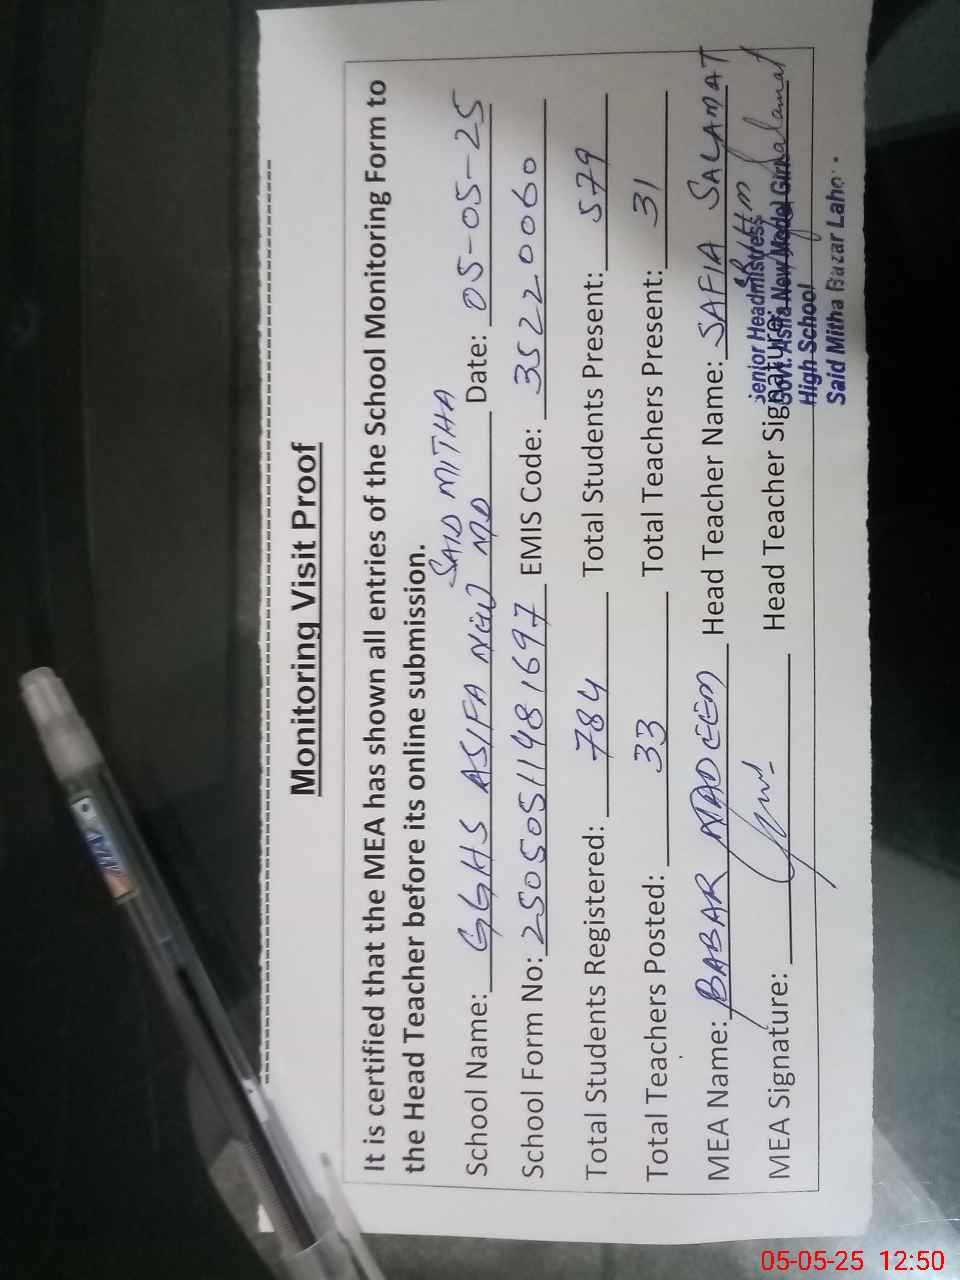 Monitoring Visit Proof
It is certified that the MEA has shown all entries of the School Monitoring Form to
the Head Teacher before its online submission.
SAID MITHA
School Name: GGHS ASIFA NEW MD Date: 05-05-25
School Form No: 2505051148 1697 EMIS Code: 35220060
Total Students Registered: 784 Total Students Present: 579
Total Teachers Posted: 33 Total Teachers Present: 31
MEA Name: BABAR NADEEM Head Teacher Name: SAFIA SALAMAT
MEA Signature: Head Teacher Signature: Salamat
Senior Headmistress
Govt. Asifa New Model Girls
High School
Said Mitha Bazar Laho
05-05-25 12:50